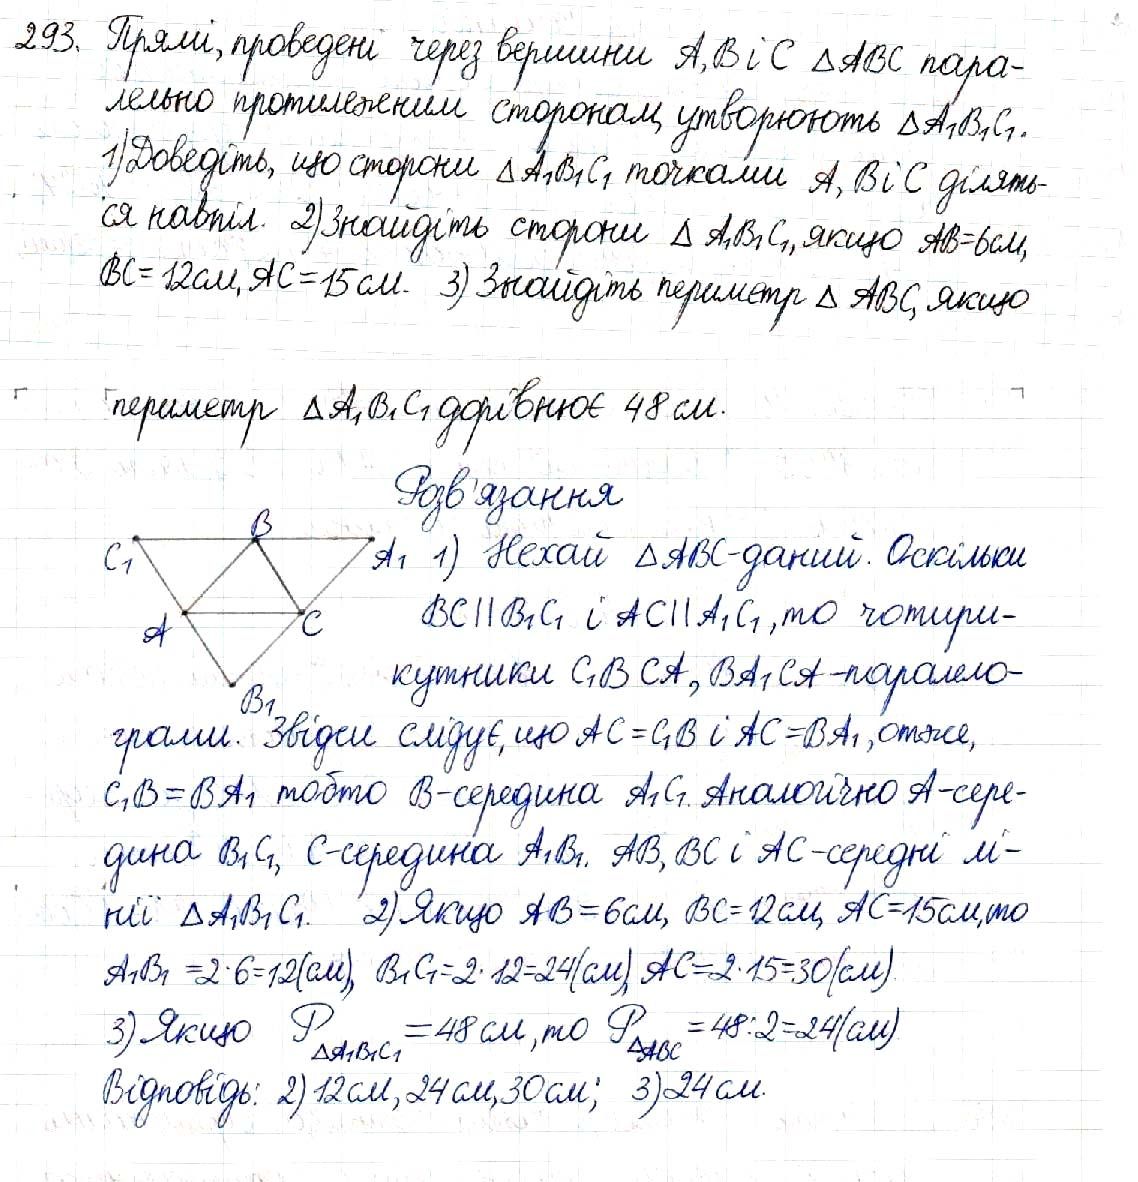 293. Прямі, проведені через вершини А, В і С △АВС пара-
лельно протилежним сторонам, утворюють △A₁B₁C₁.
1) Доведіть, що сторони △A₁B₁C₁ точками А, В і С ділять-
ся навпіл. 2) Знайдіть сторони △A₁B₁C₁, якщо АВ=6см,
ВС=12см, АС=15см. 3) Знайдіть периметр △АВС, якщо
периметр △A₁B₁C₁ дорівнює 48 см.
Розв'язання
B
C₁
A₁
A
C
B₁
1) Нехай △АВС-даний. Оскільки
BC||B₁C₁ і AC||A₁C₁, то чотири-
кутники C₁BCA, BA₁CA-парало-
грами. Звідси слідує, що AC=C₁B і AC=BA₁, отже,
C₁B=BA₁ тобто В-середина A₁C₁. Аналогічно А-сере-
дина B₁C₁, С-середина A₁B₁. АВ, ВС і АС-середні лі-
нії △A₁B₁C₁. 2) Якщо АВ=6см, ВС=12см, АС=15см, то
A₁B₁=2·6=12(см), B₁C₁=2·12=24(см), AC=2·15=30(см)
3) Якщо P△A₁B₁C₁=48см, то P△ABC=48:2=24(см)
Відповідь: 2) 12см, 24см, 30см; 3) 24см.